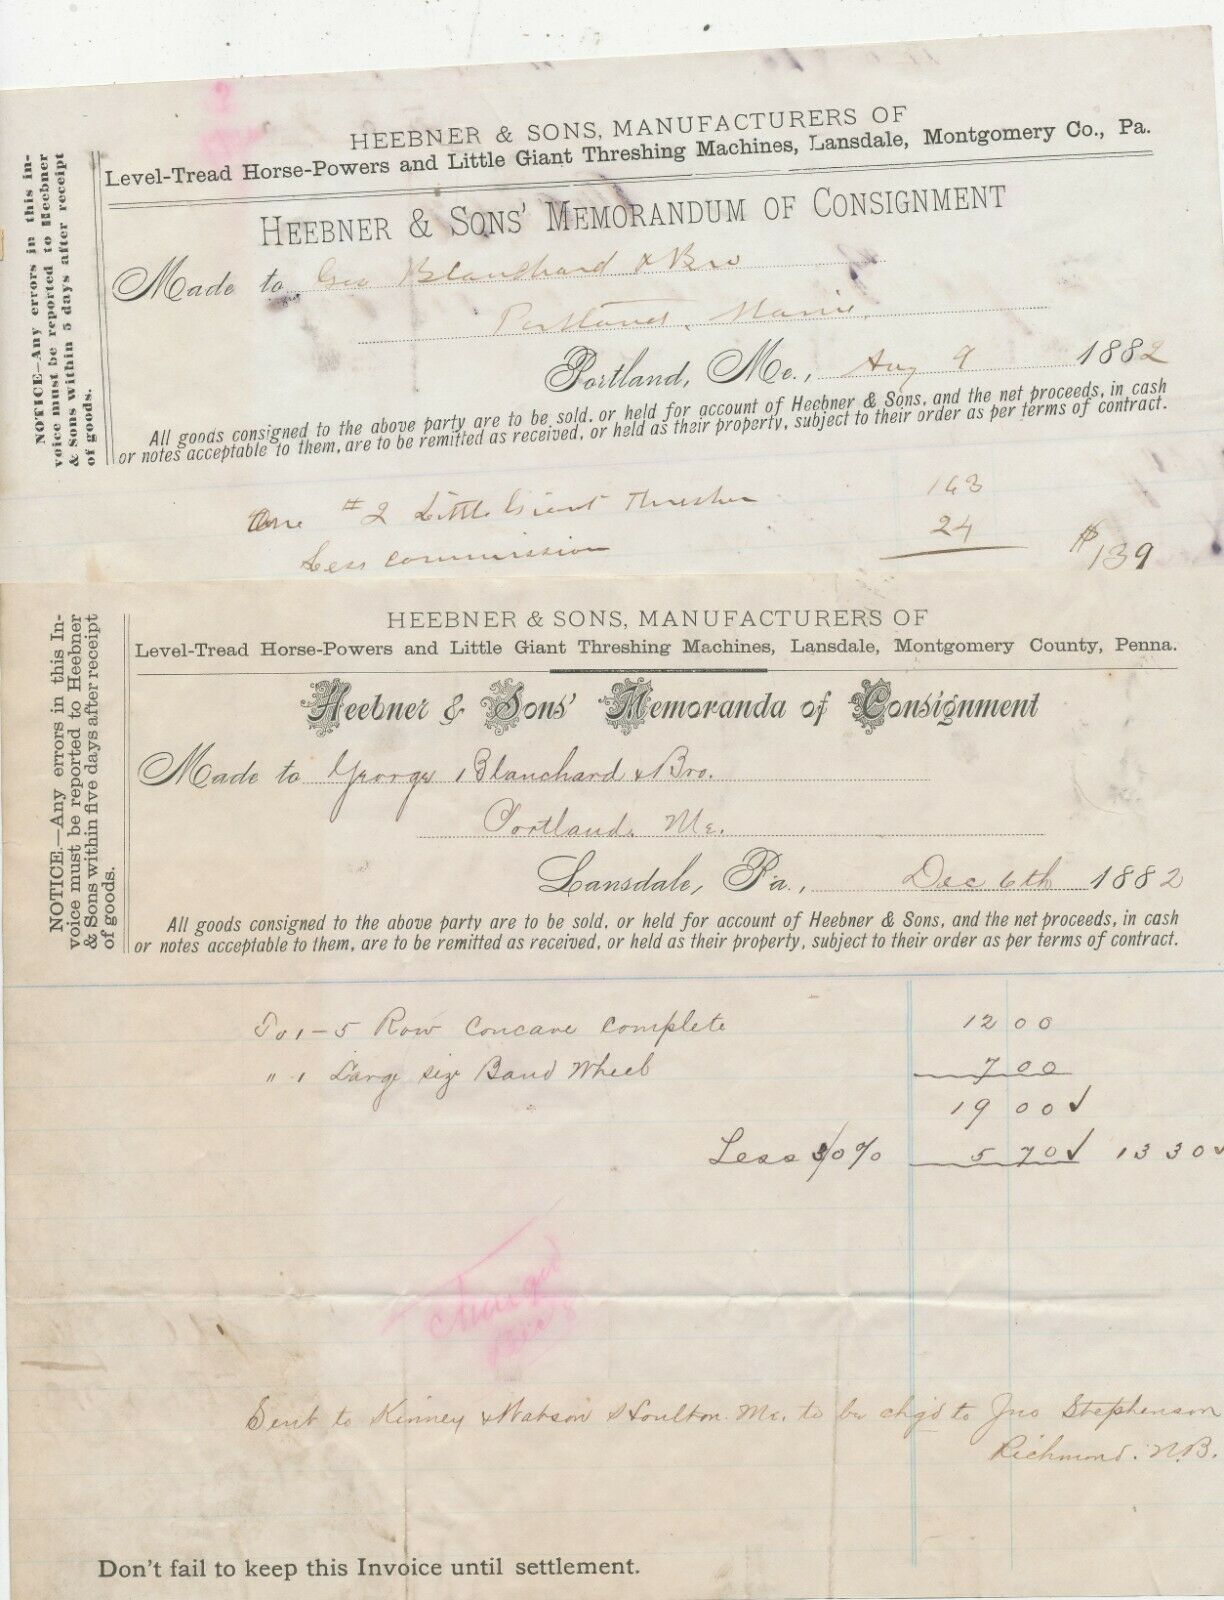 HEEBNER & SONS, MANUFACTURERS OF
Level-Tread Horse-Powers and Little Giant Threshing Machines, Lansdale, Montgomery Co., Pa.
HEEBNER & SONS' MEMORANDUM OF CONSIGNMENT
NOTICE—Any errors in this in-
voice must be reported to Heebner
& Sons within 5 days after receipt
of goods.
Made to Geo Blanchard & Bro
Portland, Maine.
Portland, Me., Aug 9 1882
All goods consigned to the above party are to be sold, or held for account of Heebner & Sons, and the net proceeds, in cash
or notes acceptable to them, are to be remitted as received, or held as their property, subject to their order as per terms of contract.
One #2 Little Giant Thresher 163
Less commission 24 $139
HEEBNER & SONS, MANUFACTURERS OF
Level-Tread Horse-Powers and Little Giant Threshing Machines, Lansdale, Montgomery County, Penna.
Heebner & Sons' Memoranda of Consignment
NOTICE.—Any errors in this In-
voice must be reported to Heebner
& Sons within five days after receipt
of goods.
Made to George Blanchard & Bro.
Portland, Me.
Lansdale, Pa., Dec 6th 1882
All goods consigned to the above party are to be sold, or held for account of Heebner & Sons, and the net proceeds, in cash
or notes acceptable to them, are to be remitted as received, or held as their property, subject to their order as per terms of contract.
To 1 - 5 Row Concave Complete 12 00
" 1 Large size Band Wheel 7 00
19 00 ✓
Less 30% 5 70 ✓ 13 30 ✓
Charged
Dec 8
Sent to Kinney & Watson Houlton Me. to be chg'd to Jno Stephenson
Richmond. N.B.
Don't fail to keep this Invoice until settlement.